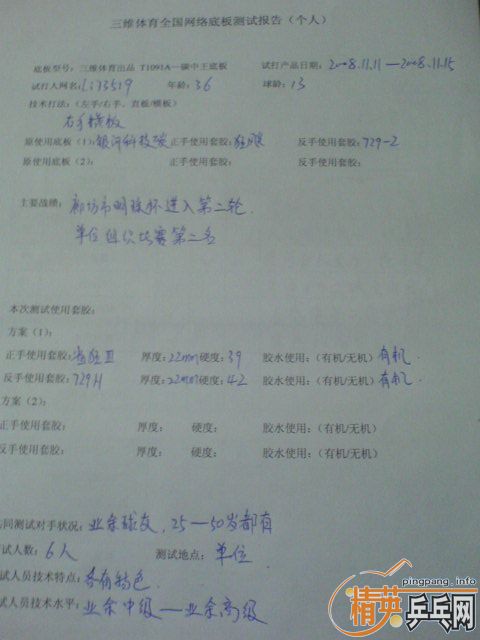 三维体育全国网络底板测试报告（个人）
底板型号：三维体育出品 T1091A—碳中王底板 试打产品日期：2008.11.11—2008.11.15
试打人网名：Li73519 年龄：36 球龄：13
技术打法：（左手/右手、直板/横板）
右手横板
原使用底板（1）：银河科技碳 正手使用套胶：狂飚 反手使用套胶：729-2
原使用底板（2）： 正手使用套胶： 反手使用套胶：
主要战绩：廊坊市明珠杯进入第二轮.
单位组织比赛第二名
本次测试使用套胶：
方案（1）：
正手使用套胶：狂III 厚度：2.2mm 硬度：39 胶水使用：（有机/无机）有机
反手使用套胶：729H 厚度：2.2mm 硬度：42 胶水使用：（有机/无机）有机.
方案（2）：
正手使用套胶： 厚度： 硬度： 胶水使用：（有机/无机）
反手使用套胶： 厚度： 硬度： 胶水使用：（有机/无机）
同测试对手状况：业余球友，25—50岁都有
试人数：6人 测试地点：单位
试人员技术特点：各有特色.
试人员技术水平：业余中级—业余高级
pingpang.info
精英乒乓网